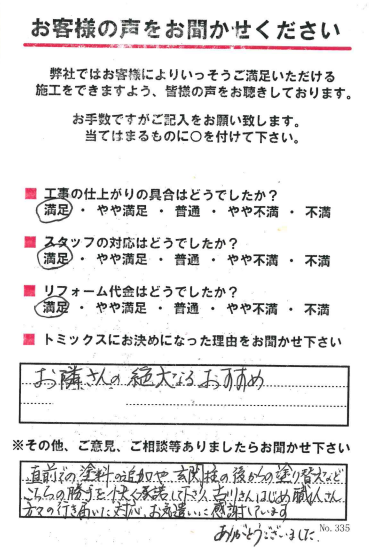 お客様の声をお聞かせください
弊社ではお客様によりいっそうご満足いただける
施工をできますよう、皆様の声をお聴きしております。
お手数ですがご記入をお願い致します。
当てはまるものに○を付けて下さい。
■ 工事の仕上がりの具合はどうでしたか?
満足 ・ やや満足 ・ 普通 ・ やや不満 ・ 不満
■ スタッフの対応はどうでしたか?
満足 ・ やや満足 ・ 普通 ・ やや不満 ・ 不満
■ リフォーム代金はどうでしたか?
満足 ・ やや満足 ・ 普通 ・ やや不満 ・ 不満
■ トミックスにお決めになった理由をお聞かせ下さい
お隣さんの絶大なるおすすめ
※その他、ご意見、ご相談等ありましたらお聞かせ下さい
直前での塗料の追加や玄関柱の後からの塗り替えなど
こちらの勝手を快く承諾して下さり、古川さんはじめ職人さん
方々の行き届いた対応、お気遣いに感謝しています
ありがとうございました。
No. 335